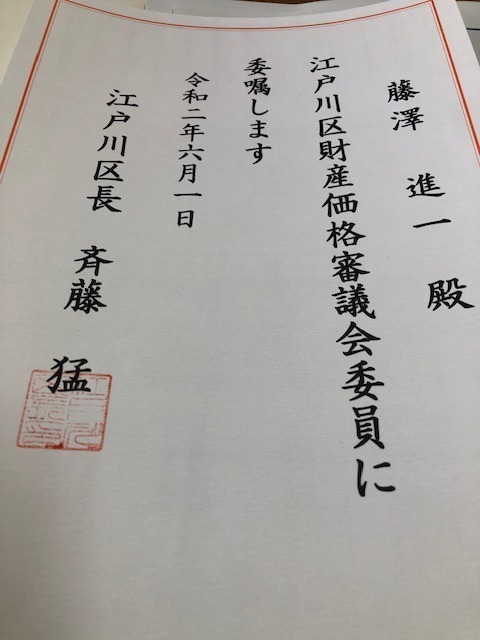 藤澤 進一 殿
江戸川区財産価格審議会委員に
委嘱します
令和二年六月一日
江戸川区長 斉藤 猛